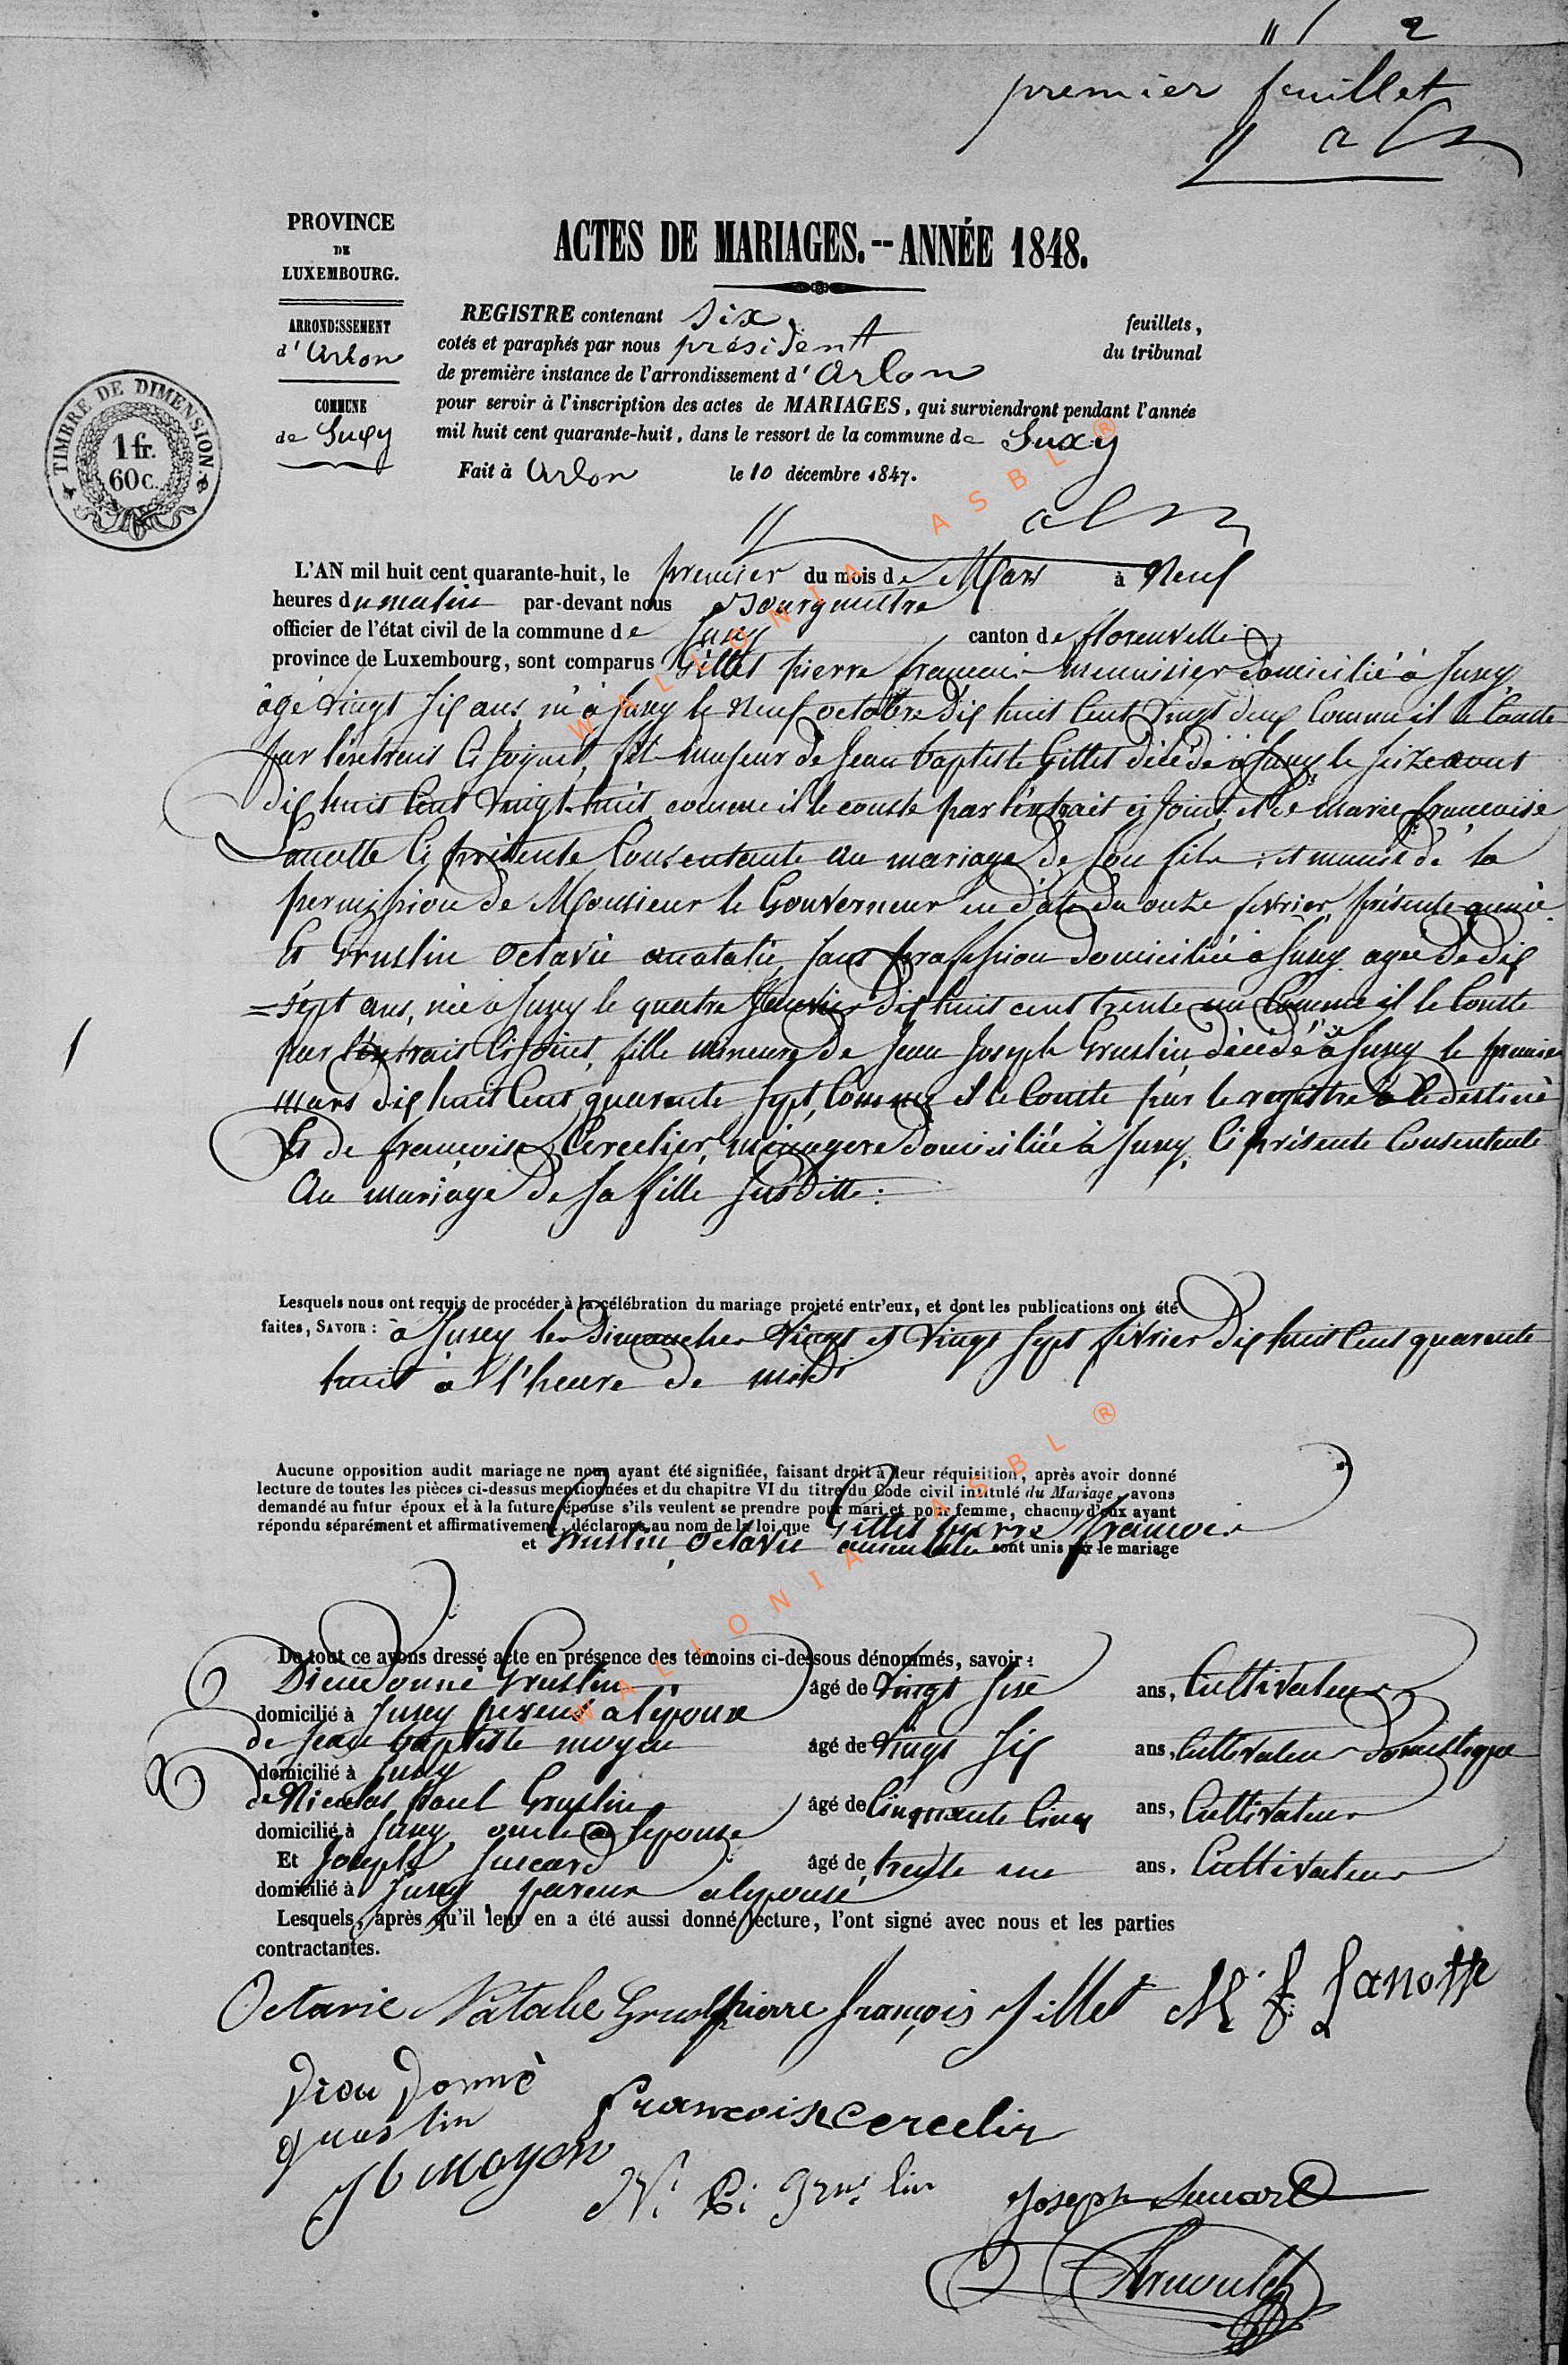 2
premier feuillet
PROVINCE
DE
LUXEMBOURG.
ARRONDISSEMENT
d'Arlon
COMMUNE
de Suxy
TIMBRE DE DIMENSION
1 fr.
60 c.
ACTES DE MARIAGES.--ANNÉE 1848.
REGISTRE contenant six feuillets,
cotés et paraphés par nous président du tribunal
de première instance de l'arrondissement d'Arlon
pour servir à l'inscription des actes de MARIAGES, qui surviendront pendant l'année
mil huit cent quarante-huit, dans le ressort de la commune de Suxy
Fait à Arlon le 10 décembre 1847.
L'AN mil huit cent quarante-huit, le premier du mois de Mars à Neuf
heures du matin par-devant nous Bourgmestre
officier de l'état civil de la commune de Suxy canton de florenville
province de Luxembourg, sont comparus Gillet pierre francois menuisier domicilié à Suxy
âgé vingt six ans, né à Suxy le neuf octobre dix huit cent vingt deux comme il le conste
par l'extrait ci joint, fils majeur de Jean baptiste Gillet décédé à Suxy le seize aout
dix huit cent vingt-huit comme il le conste par l'extrait ci joint, et de marie françoise
ci présente consentente au mariage de son fils ; et munit de la
permission de Monsieur le Gouverneur en date du onze fevrier présente année
Et Gruslin Octavie anatalie, sans profession domiciliée à Suxy agée de dix
=sept ans, née à Suxy le quatre Janvier dix huit cent trente un comme il le conste
par l'extrait ci joint, fille mineure de Jean Joseph Gruslin, décédé à Suxy le premier
mars dix huit cent quarante sept, comme il le conste par le registre à ce destiné
Et de françoise Cercelier, ménagere domiciliée à Suxy, ci présente consentente
Au mariage de sa fille susditte :
Lesquels nous ont requis de procéder à la célébration du mariage projeté entr'eux, et dont les publications ont été
faites, SAVOIR : à Suxy les Dimanches Vingt et Vingt sept février dix huit cent quarente
huit à l'heure de midi
Aucune opposition audit mariage ne nous ayant été signifiée, faisant droit à leur réquisition, après avoir donné
lecture de toutes les pièces ci-dessus mentionnées et du chapitre VI du titre du Code civil intitulé du Mariage, avons
demandé au futur époux et à la future épouse s'ils veulent se prendre pour mari et pour femme, chacun d'eux ayant
répondu séparément et affirmativement, déclarons au nom de la loi que Gillet pierre francois
et Gruslin, Octavie sont unis par le mariage
De tout ce avons dressé acte en présence des témoins ci-dessous dénommés, savoir :
Dieudonné Gruslin âgé de vingt ans, Cultivateur
domicilié à Suxy à l'épouse
de Jean baptiste moyen âgé de vingt six ans, Cultivateur domestique
domicilié à Suxy
de Nicolas paul Gruslin âgé de cinquante cinq ans, Cultivateur
domicilié à Suxy oncle a l'epouse
Et Joseph âgé de trente un ans, Cultivateur
domicilié à Suxy, parent a lepouse
Lesquels, après qu'il leur en a été aussi donné lecture, l'ont signé avec nous et les parties
contractantes.
Octavie Natalie Gruslin pierre françois Gillet M f Janotte
Dieu Donné
gruslin
françoise Cercelir
J b moyen
N. P. Gruslin
Joseph
WALLONIA ASBL ®
WALLONIA ASBL ®